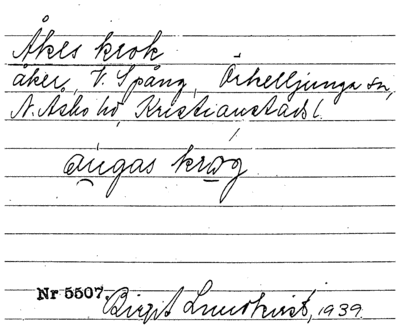 Åkes krok
åker, V. Spång, Örkelljunga sn,
N. Åsbo hd, Kristianstads l.
aŋgas krog
Nr 5507. Birgit Lundkvist, 1939.